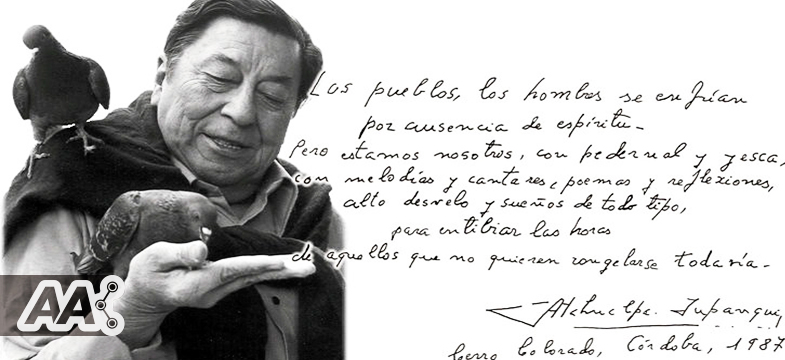 Los pueblos, los hombres se enfrían
por ausencia de espíritu_
Pero estamos nosotros, con pedernal y yesca,
con melodías y cantares, poemas y reflexiones,
alto desvelo y sueños de todo tipo,
para entibiar las horas
de aquellos que no quieren congelarse todavía_
Atahualpa Yupanqui
Cerro Colorado, Córdoba, 1987
AA